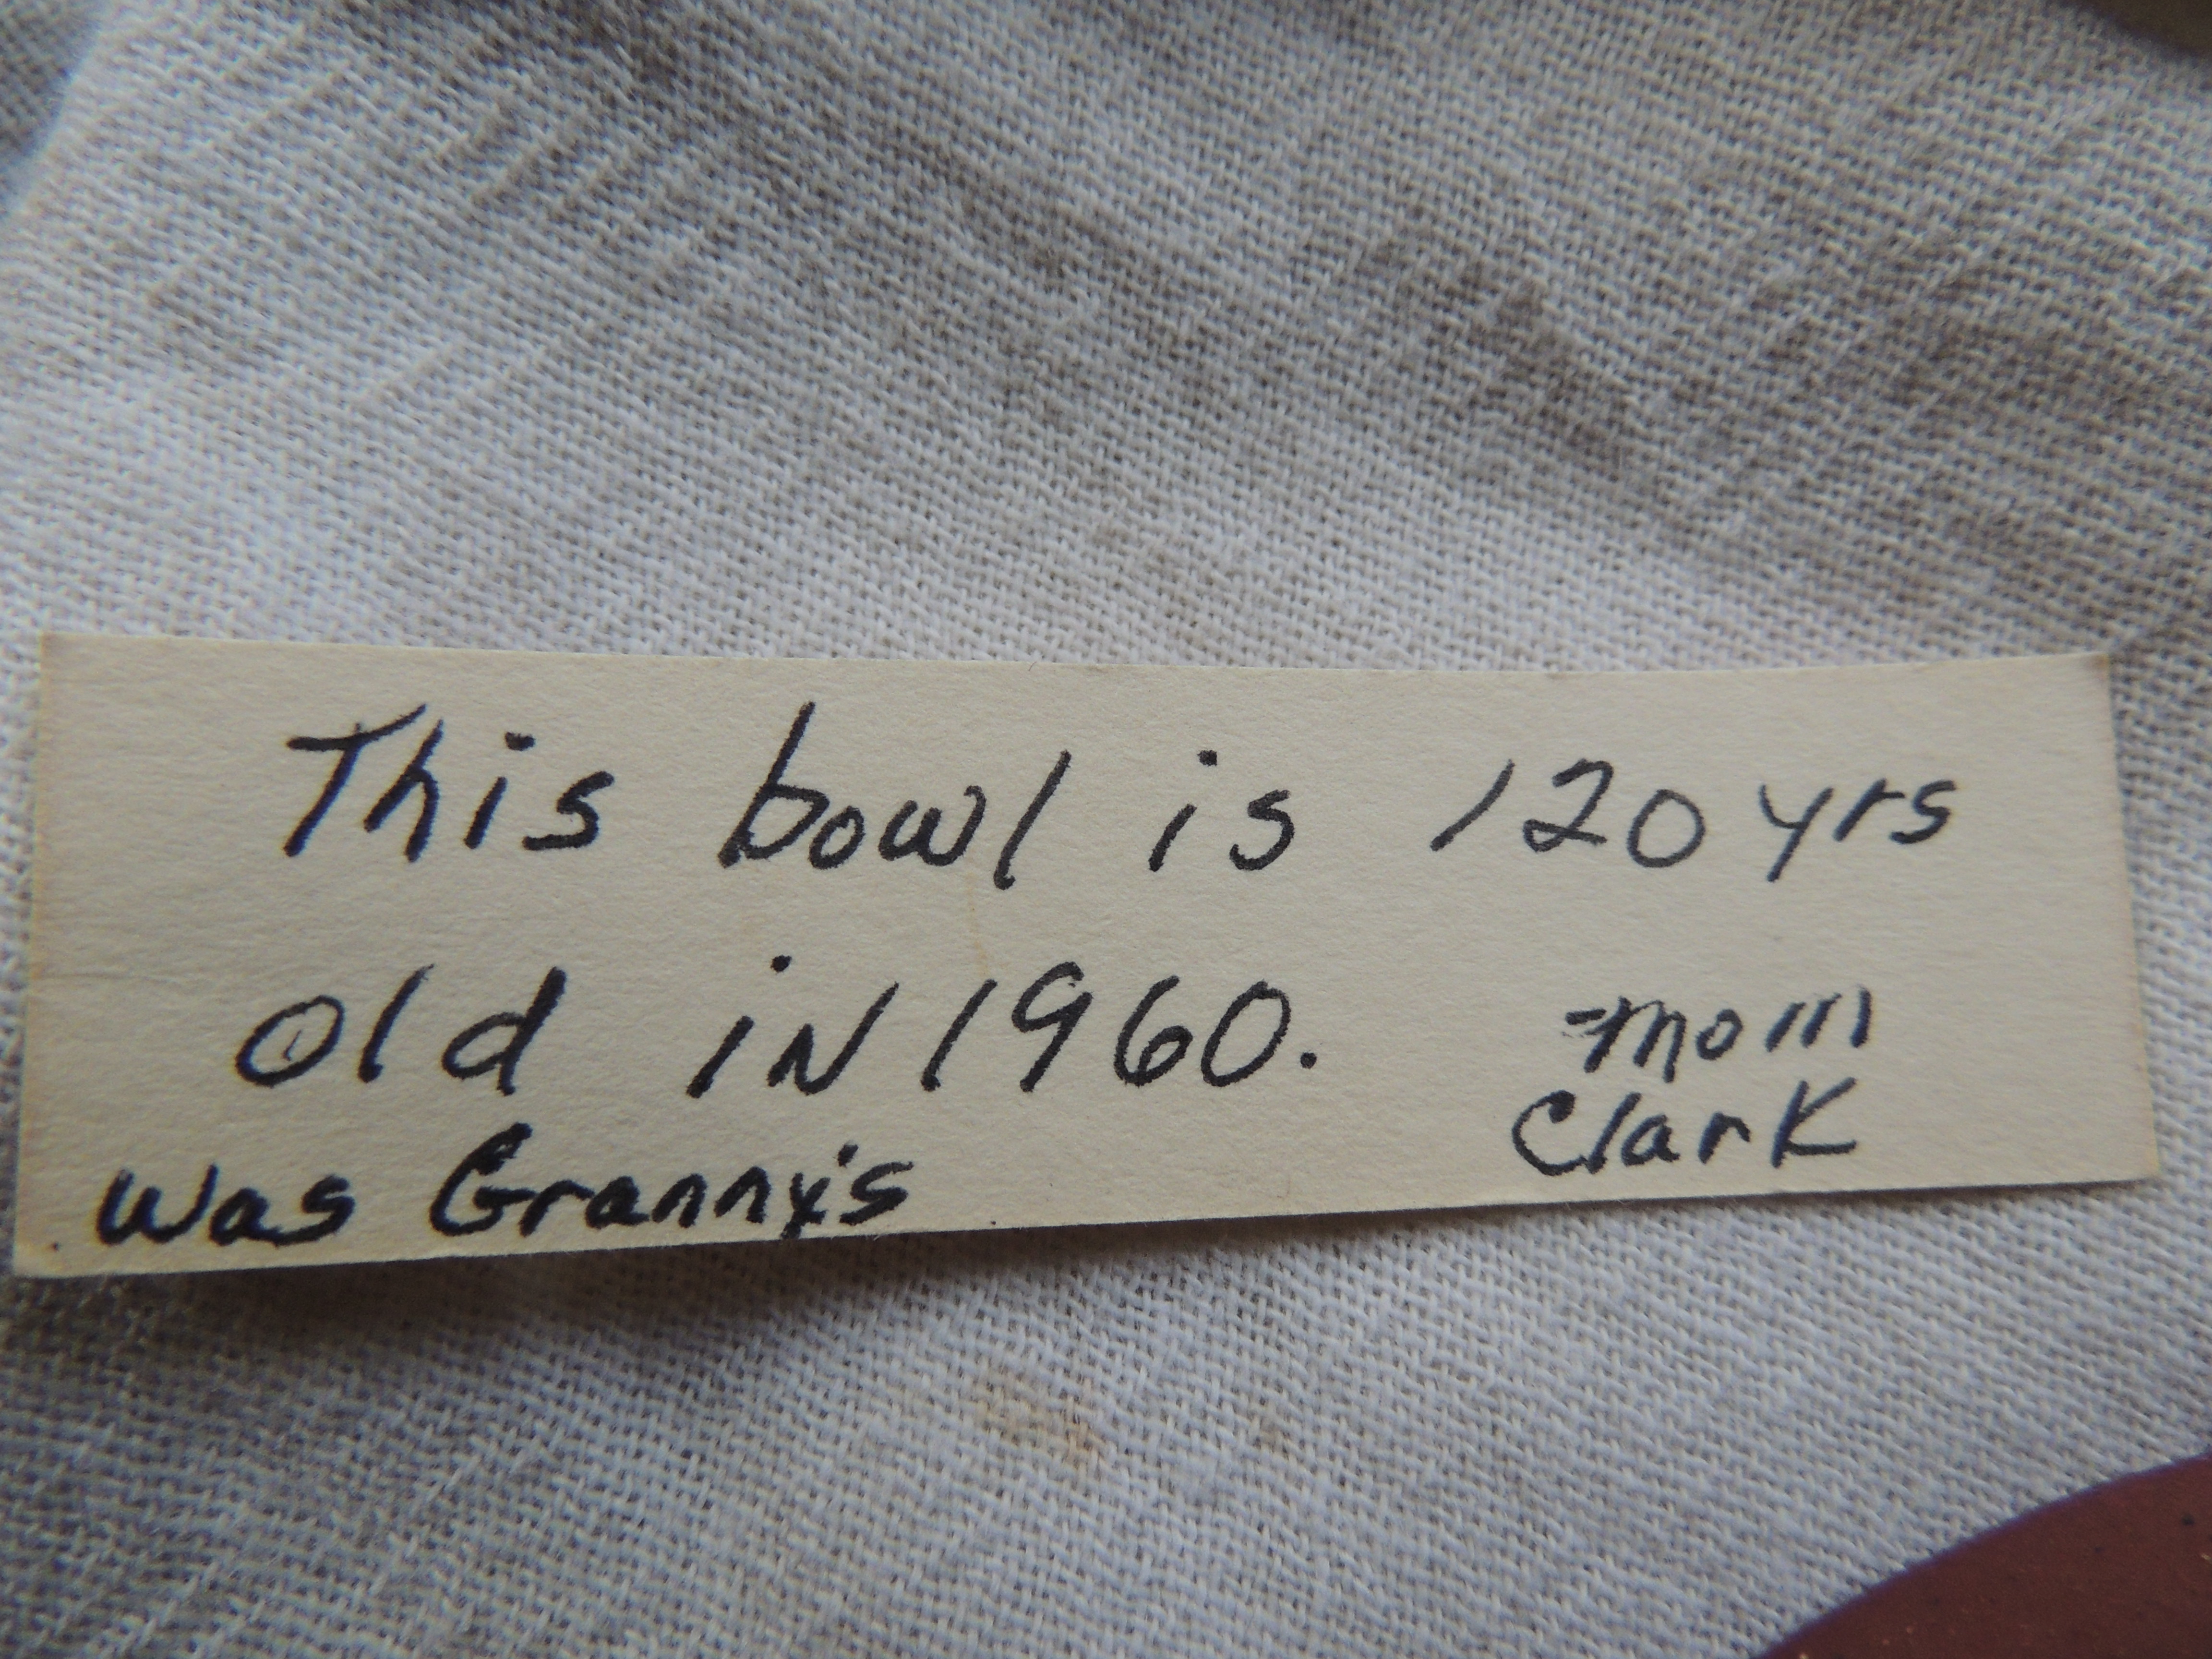 This bowl is 120 yrs
old in 1960.
-Mom
Clark
Was Granny's